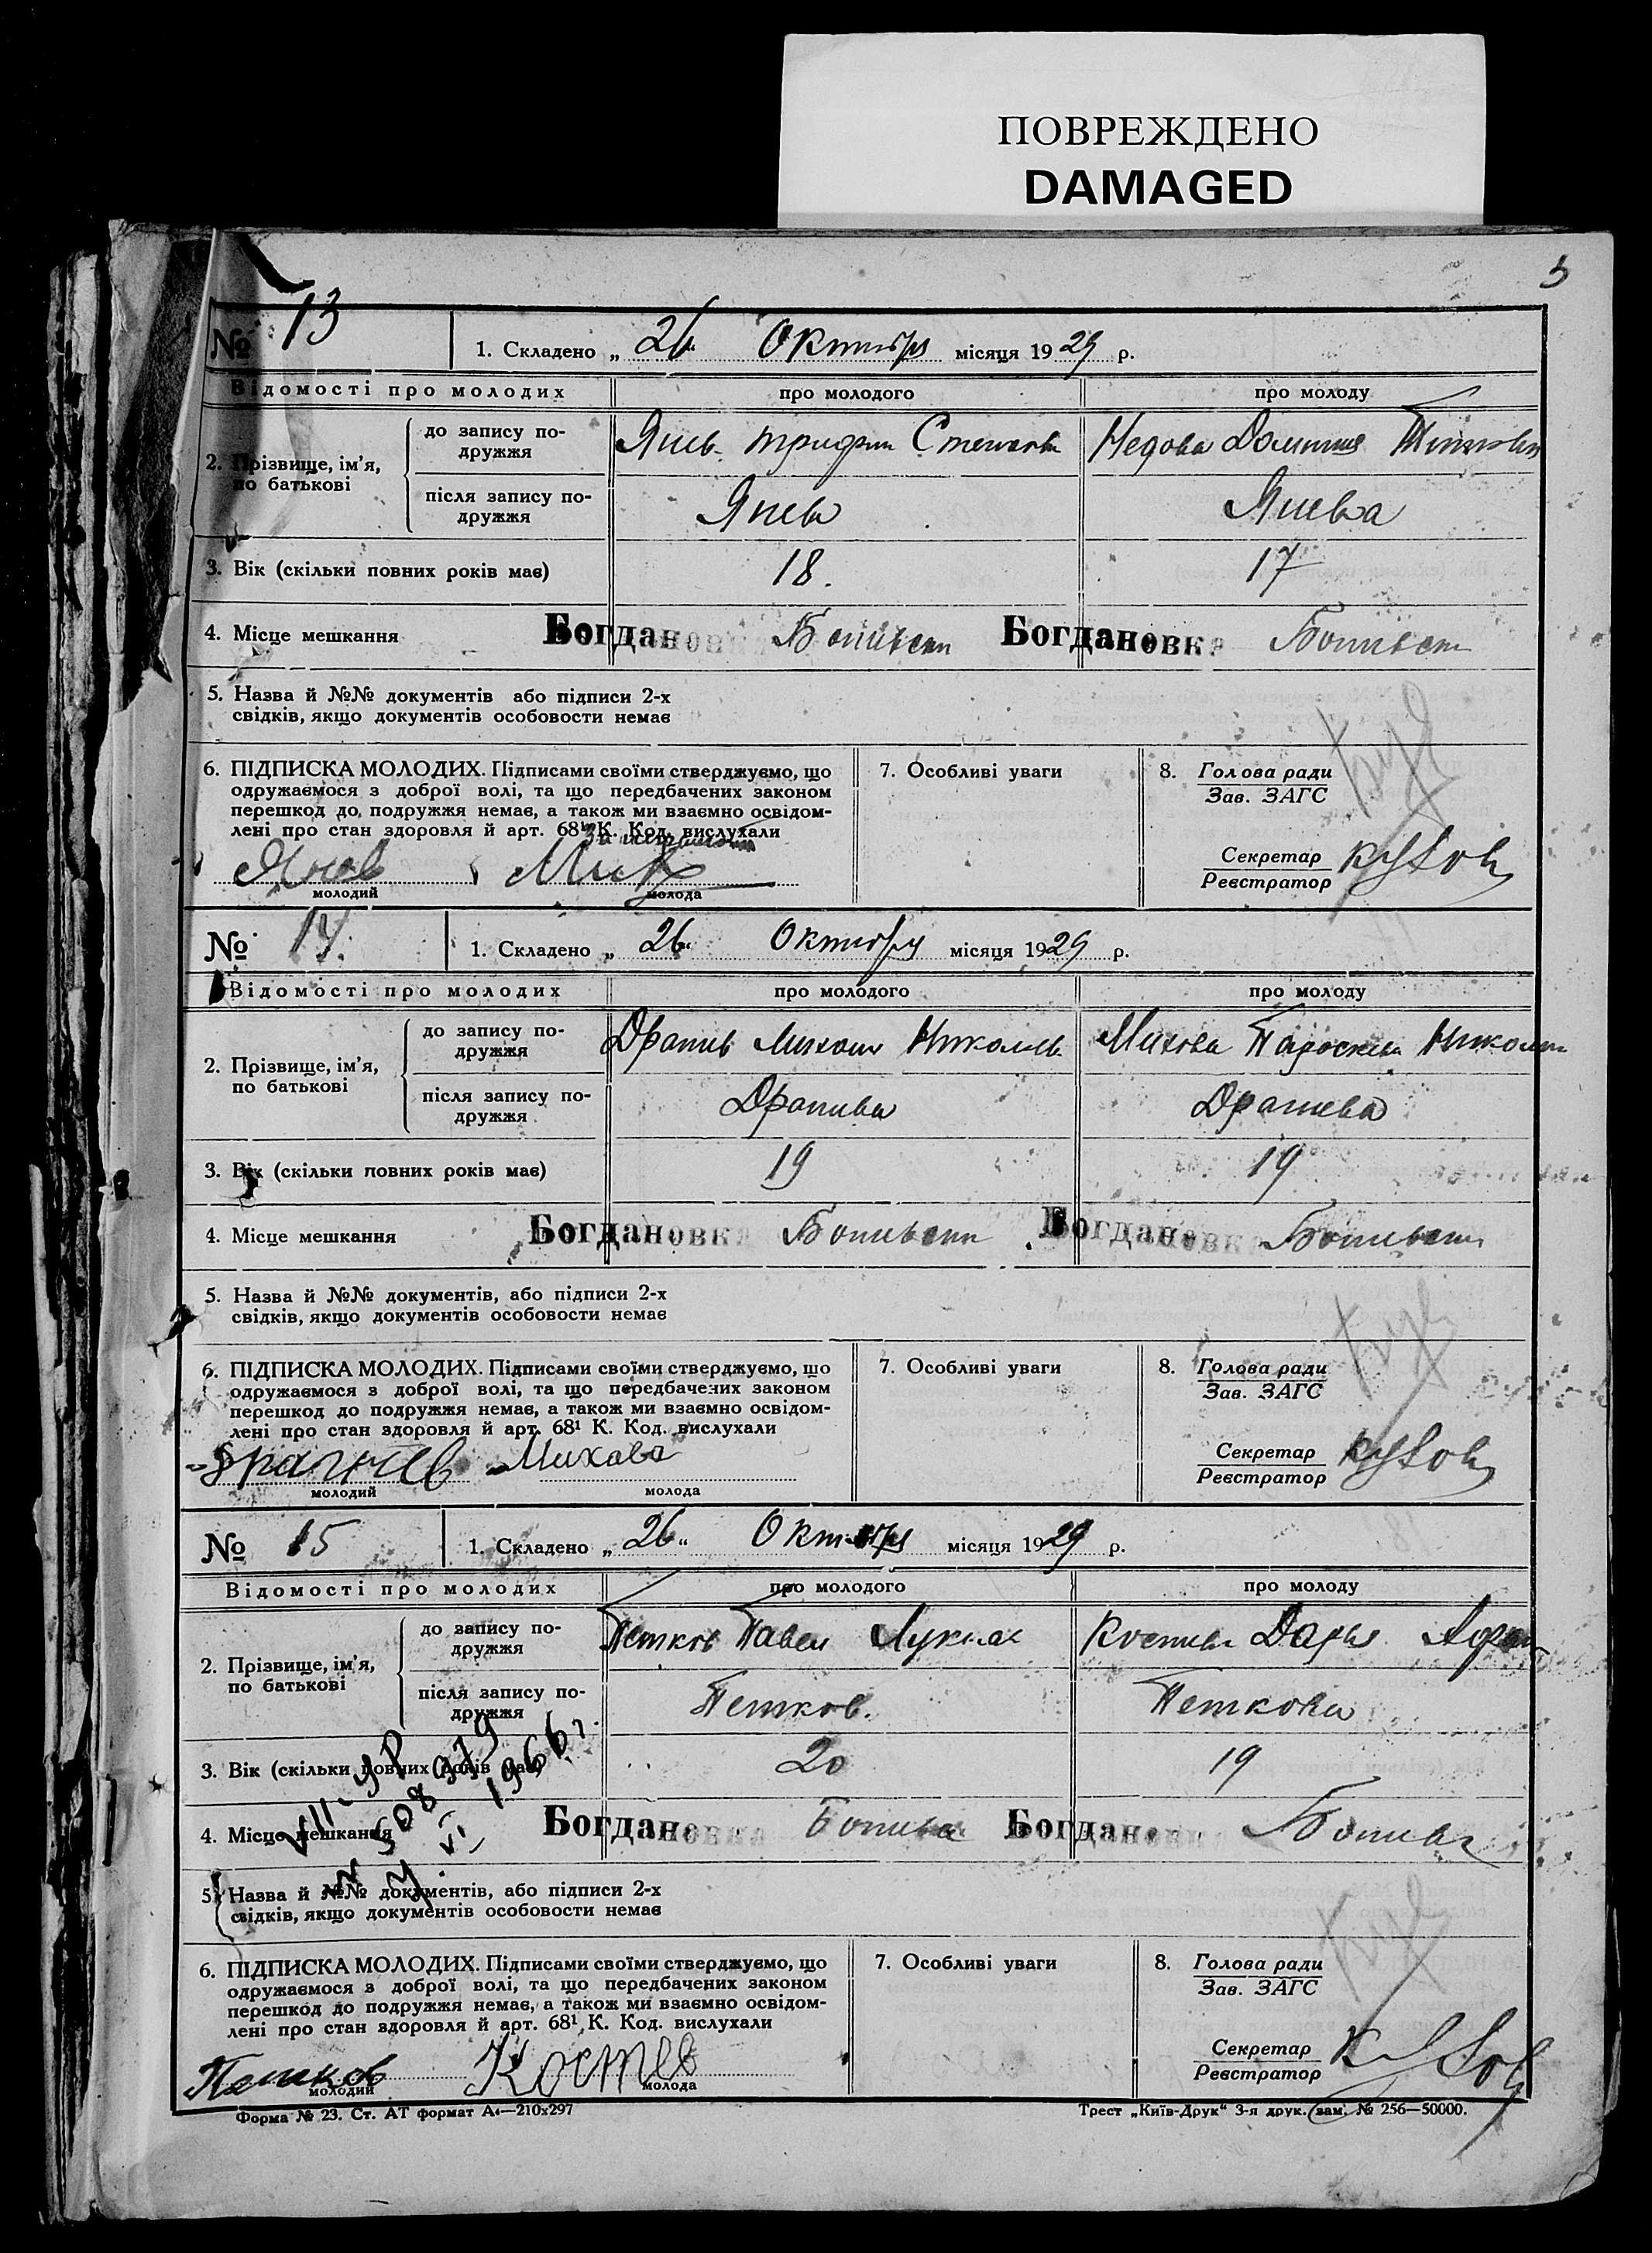 ПОВРЕЖДЕНО
DAMAGED
5
№ 13 1. Складено „ 26 “ Октября місяця 1929 р.
Відомості про молодих про молодого про молоду
2. Прізвище, ім’я, по батькові
до запису подружжя Янев Трифон Степанов Недова Домника
після запису подружжя Янев Янева
3. Вік (скільки повних років має) 18. 17
4. Місце мешкання Богдановка Богдановка
5. Назва й №№ документів або підписи 2-х
свідків, якщо документів особовости немає
6. ПІДПИСКА МОЛОДИХ. Підписами своїми стверджуємо, що
одружаємося з доброї волі, та що передбачених законом
перешкод до подружжя немає, а також ми взаємно освідом-
лені про стан здоровля й арт. 68¹ К. Код. вислухали
Янев
молодий молода
7. Особливі уваги
8. Голова ради
Зав. ЗАГС
Секретар
Реєстратор
№ 14. 1. Складено „ 26 “ Октября місяця 1929 р.
Відомості про молодих про молодого про молоду
2. Прізвище, ім’я,
по батькові
до запису по-
дружжя Михаил Николаев Михова Параскева
після запису по-
дружжя
3. Вік (скільки повних років має) 19 19
4. Місце мешкання Богдановка Богдановка
5. Назва й №№ документів, або підписи 2-х
свідків, якщо документів особовости немає
6. ПІДПИСКА МОЛОДИХ. Підписами своїми стверджуємо, що
одружаємося з доброї волі, та що передбачених законом
перешкод до подружжя немає, а також ми взаємно освідом-
лені про стан здоровля й арт. 68¹ К. Код. вислухали
Михова
молодий молода
7. Особливі уваги
8. Голова ради
Зав. ЗАГС
Секретар
Реєстратор
№ 15 1. Складено „ 26 “ Октября місяця 1929 р.
Відомості про молодих про молодого про молоду
2. Прізвище, ім’я,
по батькові
до запису по-
дружжя Петков Павел Костева Дарья
після запису по-
дружжя Петков. Петкова
3. Вік (скільки повних років має) 20 19
4. Місце мешкання Богдановка Богдановка
VII-УР
N 508979
4. VI 1966 г.
5. Назва й №№ документів, або підписи 2-х
свідків, якщо документів особовости немає
6. ПІДПИСКА МОЛОДИХ. Підписами своїми стверджуємо, що
одружаємося з доброї волі, та що передбачених законом
перешкод до подружжя немає, а також ми взаємно освідом-
лені про стан здоровля й арт. 68¹ К. Код. вислухали
Петков Костев
молодий молода
7. Особливі уваги
8. Голова ради
Зав. ЗАГС
Секретар
Реєстратор
Форма № 23. Ст. АТ формат А₄—210х297 Трест „Київ-Друк“ 3-я друк. зам. № 256—50000.